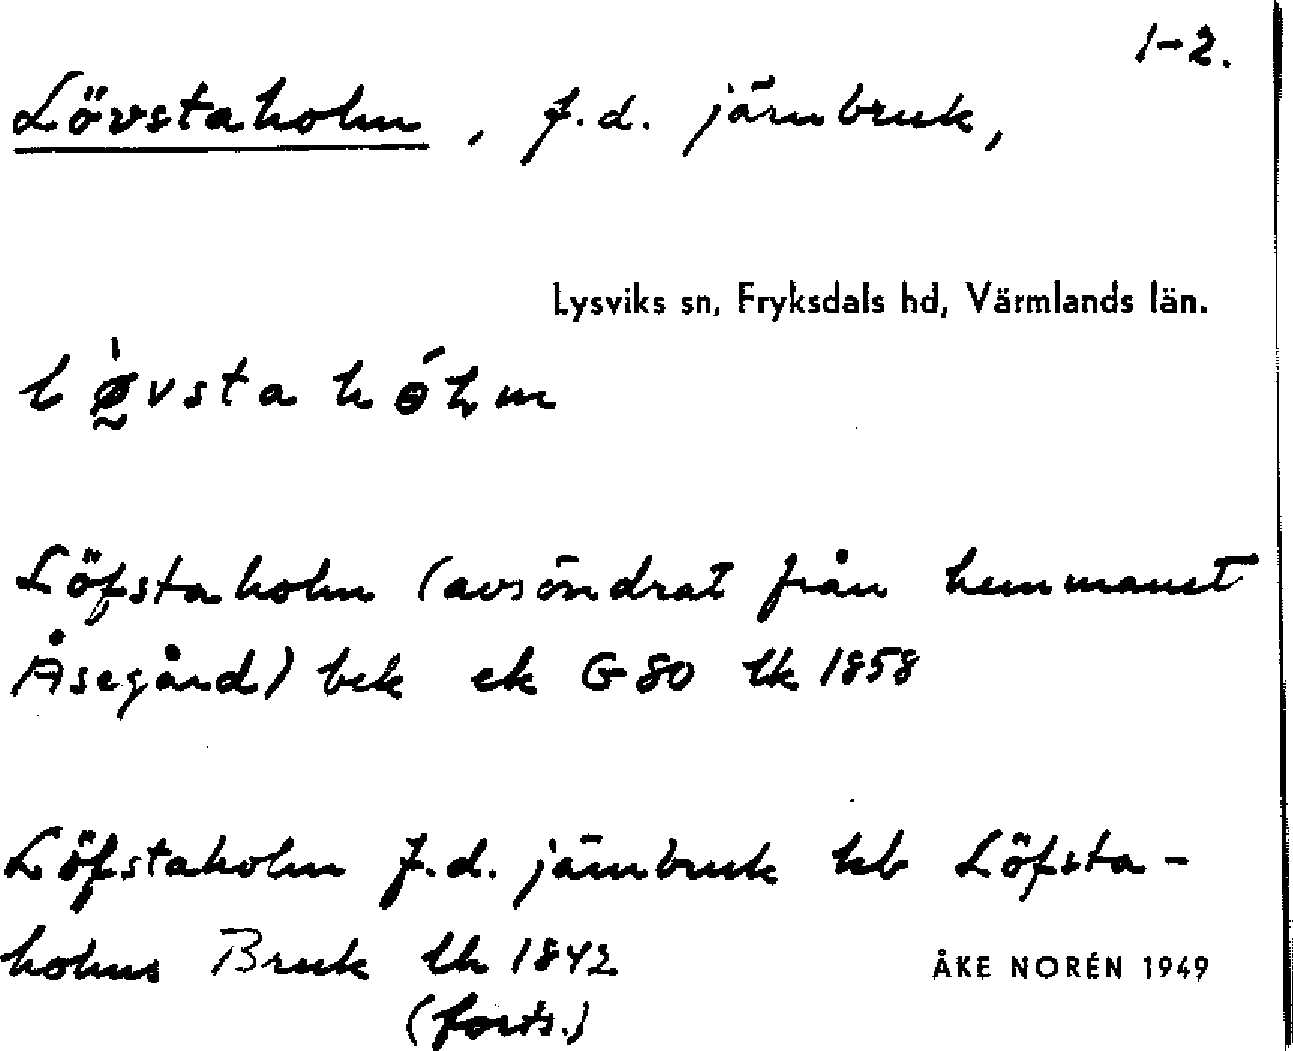 1-2.
Lövstaholm, f.d. järnbruk,
Lysviks sn, Fryksdals hd, Värmlands län.
Löfstaholm (avsöndrat från hemmanet
Åsegård) bek ek G 80 lk 1858
Löfstaholm f.d. järnbruk hb Löfsta-
holms Bruk lk 1842
ÅKE NORÉN 1949
(forts.)